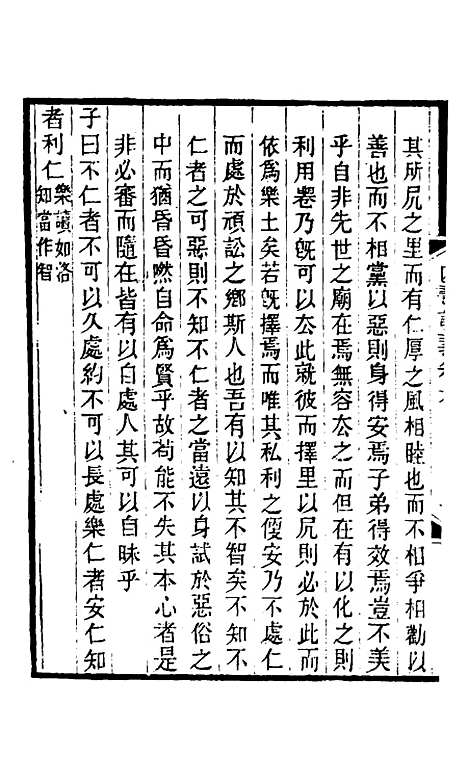 其所凥之里而有仁厚之風相睦也而不相爭相勸以
善也而不相黨以惡則身得安焉子弟得效焉豈不美
乎自非先世之廟在焉無容厺之而但在有以化之則
利用遷乃旣可以厺此就彼而擇里以凥則必於此而
依爲樂土矣若旣擇焉而唯其私利之便安乃不處仁
而處於頑訟之鄕斯人也吾有以知其不智矣不知不
仁者之可惡則不知不仁者之當遠以身試於惡俗之
中而猶昏昏然自命爲賢乎故苟能不失其本心者是
非必審而隨在皆有以自處人其可以自昧乎
子曰不仁者不可以久處約不可以長處樂仁者安仁知
者利仁樂讀如洛知當作智